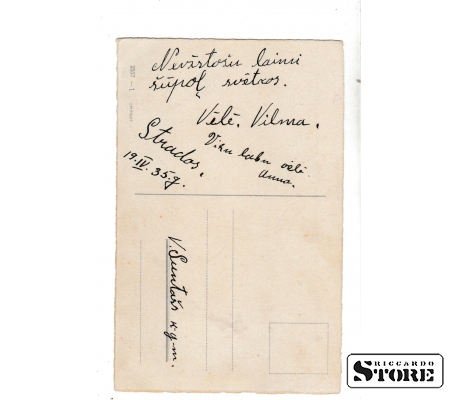 Nevīstošu laimi
šūpoļ svētkos.
Vēlē. Vilma.
Visu labu vēlē
Anna.
Strados.
19.IV.35.g.
V. Suntažs kgm.
2957 - 1
RICCARDO
STORE